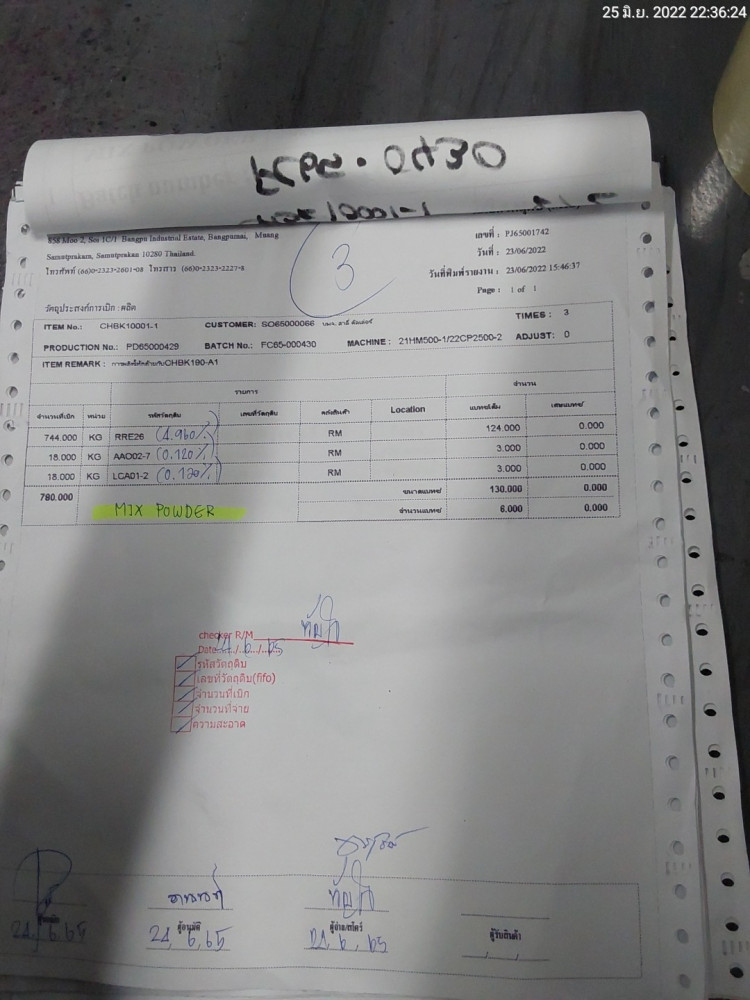 25 มิ.ย. 2022 22:36:24
858 Moo 2, Soi 1C/1 Bangpu Industrial Estate, Bangpumai, Muang
Samutprakarn, Samutprakan 10280 Thailand.
โทรศัพท์ (66)0-2323-2601-08 โทรสาร (66)0-2323-2227-8
เลขที่ : PJ65001742
วันที่ : 23/06/2022
วันที่พิมพ์รายงาน : 23/06/2022 15:46:37
Page : 1 of 1
3
วัตถุประสงค์การเบิก : ผลิต
ITEM No.: CHBK10001-1 CUSTOMER: SO65000066 TIMES : 3
PRODUCTION No.: PD65000429 BATCH No.: FC65-000430 MACHINE : 21HM500-1/22CP2500-2 ADJUST: 0
ITEM REMARK : CHBK190-A1
รายการ จำนวน
จำนวนที่เบิก หน่วย รหัสวัตถุดิบ เลขที่วัตถุดิบ คลังสินค้า Location แบทช์เต็ม เศษแบทช์
744.000 KG RRE26 (4.960%) RM 124.000 0.000
18.000 KG AAO02-7 (0.120%) RM 3.000 0.000
18.000 KG LCA01-2 (0.120%) RM 3.000 0.000
780.000 ขนาดแบทช์ 130.000 0.000
MIX POWDER จำนวนแบทช์ 6.000 0.000
checker R/M
Date 24/6/65
รหัสวัตถุดิบ
เลขที่วัตถุดิบ(fifo)
จำนวนที่เบิก
จำนวนที่จ่าย
ความสะอาด
ผู้อนุมัติ ผู้จ่าย/สโตร์ ผู้รับสินค้า
24/6/65 24, 6, 65 24, 6, 65